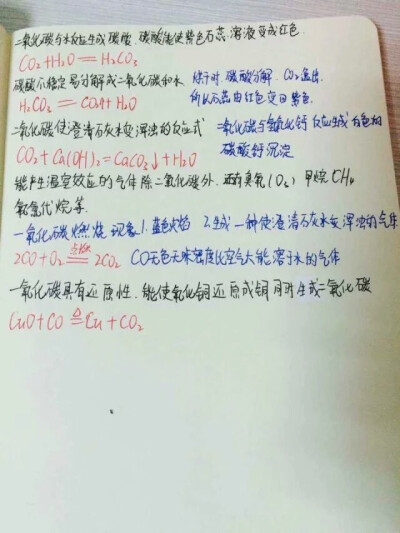 二氧化碳与水反应生成碳酸，碳酸能使紫色石蕊溶液变成红色.
CO₂+H₂O═H₂CO₃
碳酸不稳定易分解成二氧化碳和水 烘干时，碳酸分解，CO₂逸出
H₂CO₃═CO₂↑+H₂O 所以石蕊由红色变回紫色.
二氧化碳使澄清石灰水变浑浊的反应式 二氧化碳与氢氧化钙反应生成白色的
CO₂+Ca(OH)₂═CaCO₃↓+H₂O 碳酸钙沉淀
能产生温室效应的气体除二氧化碳外，还有臭氧(O₃) 甲烷CH₄
氟氯代烷等.
一氧化碳燃烧 现象1.蓝色火焰 2.生成一种使澄清石灰水变浑浊的气体
2CO+O₂ 点燃═ 2CO₂ CO无色无味密度比空气大能溶于水的气体
一氧化碳具有还原性，能使氧化铜还原成铜同时生成二氧化碳
CuO+CO △═ Cu+CO₂